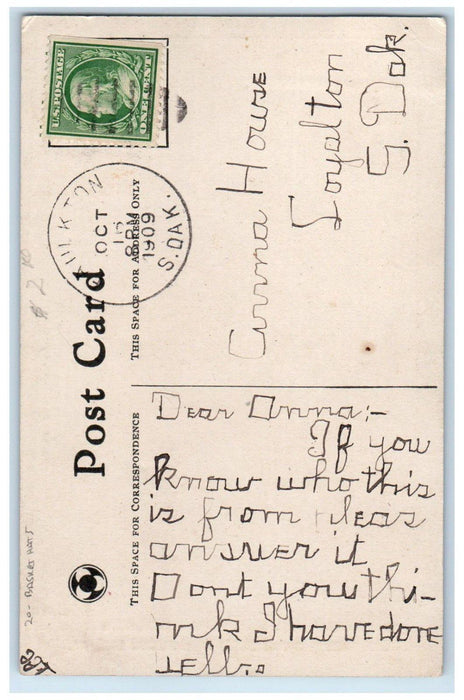 U.S. POSTAGE
ONE CENT
OCT
15
8 PM
1909
S. DAK.
Post Card
THIS SPACE FOR ADDRESS ONLY
Anna House
Loyalton
S. Dak.
THIS SPACE FOR CORRESPONDENCE
Dear Anna;-
If you
know who this
is from pleas
answer it
Dont you thi-
nk I have done
well..
20- BASKET HATS
$ 2